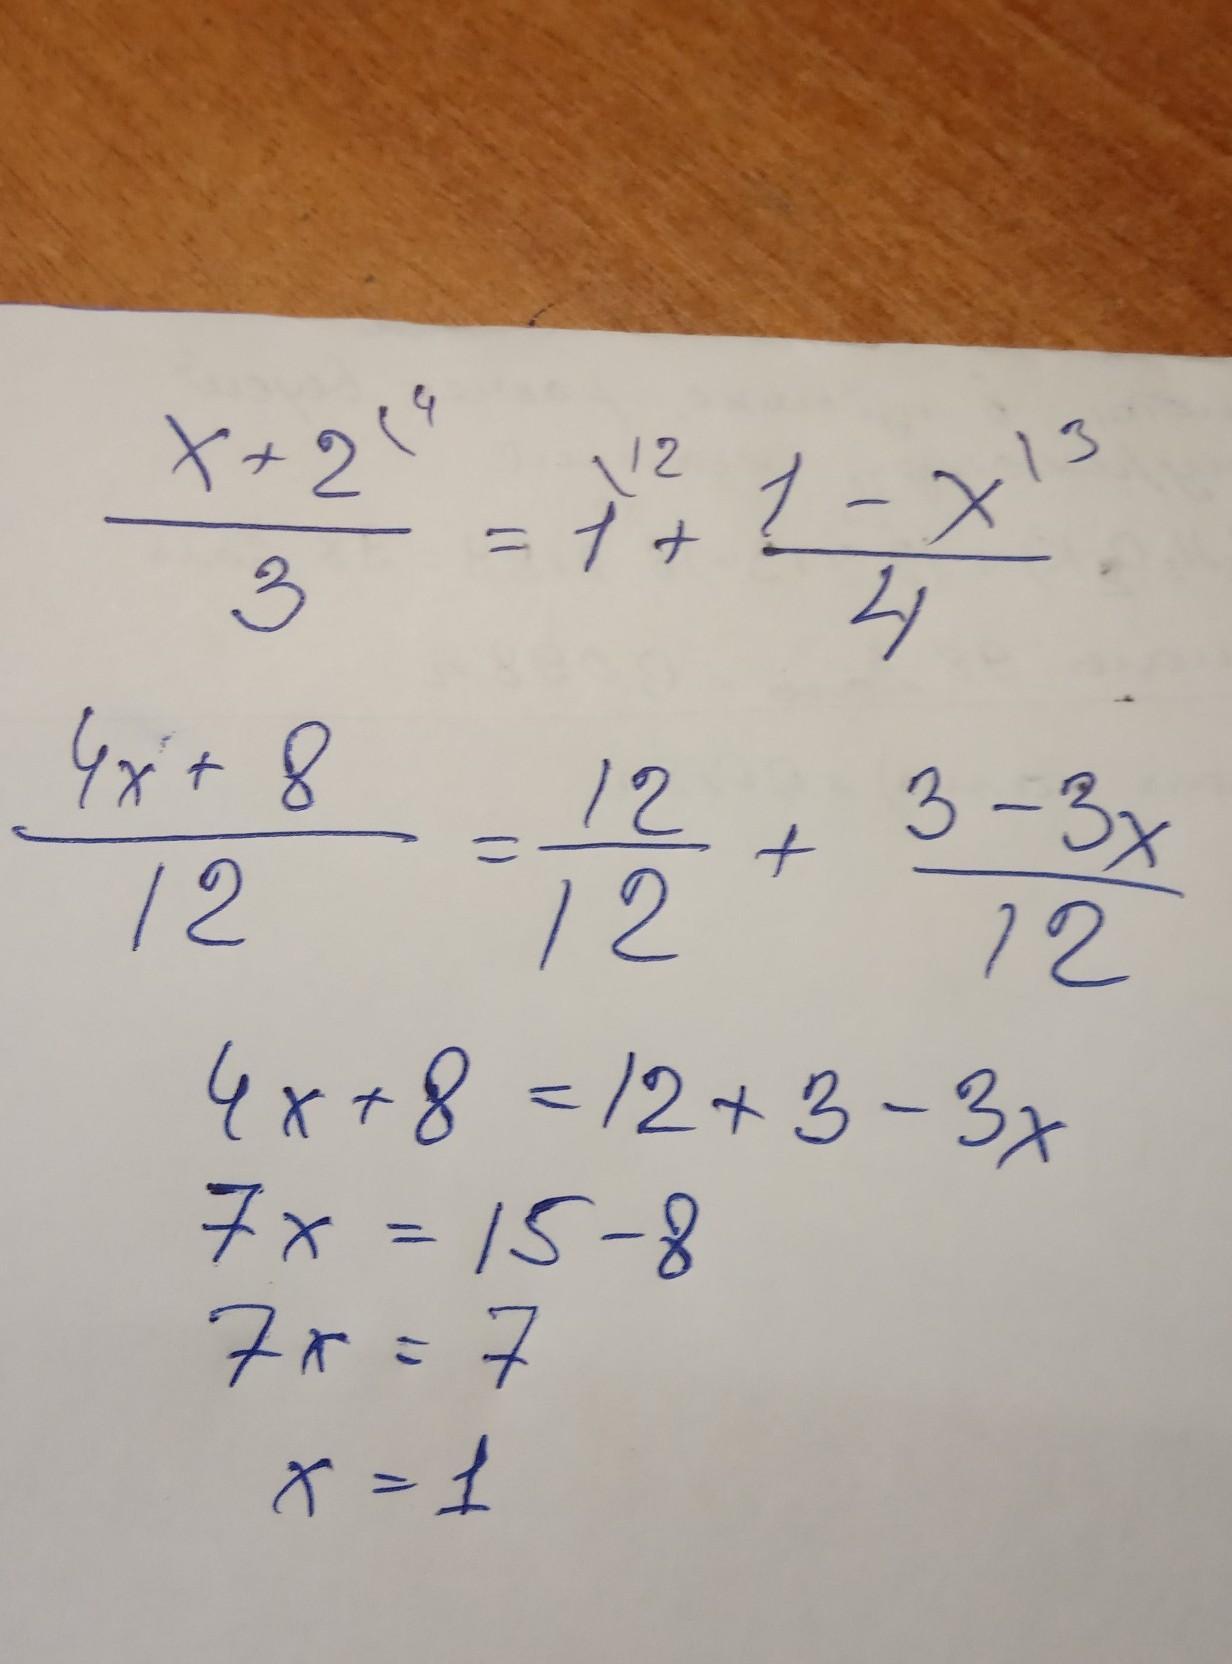 (x + 2)/3 \4 = 1 \12 + (1 - x)/4 \3
(4x + 8)/12 = 12/12 + (3 - 3x)/12
4x + 8 = 12 + 3 - 3x
7x = 15 - 8
7x = 7
x = 1